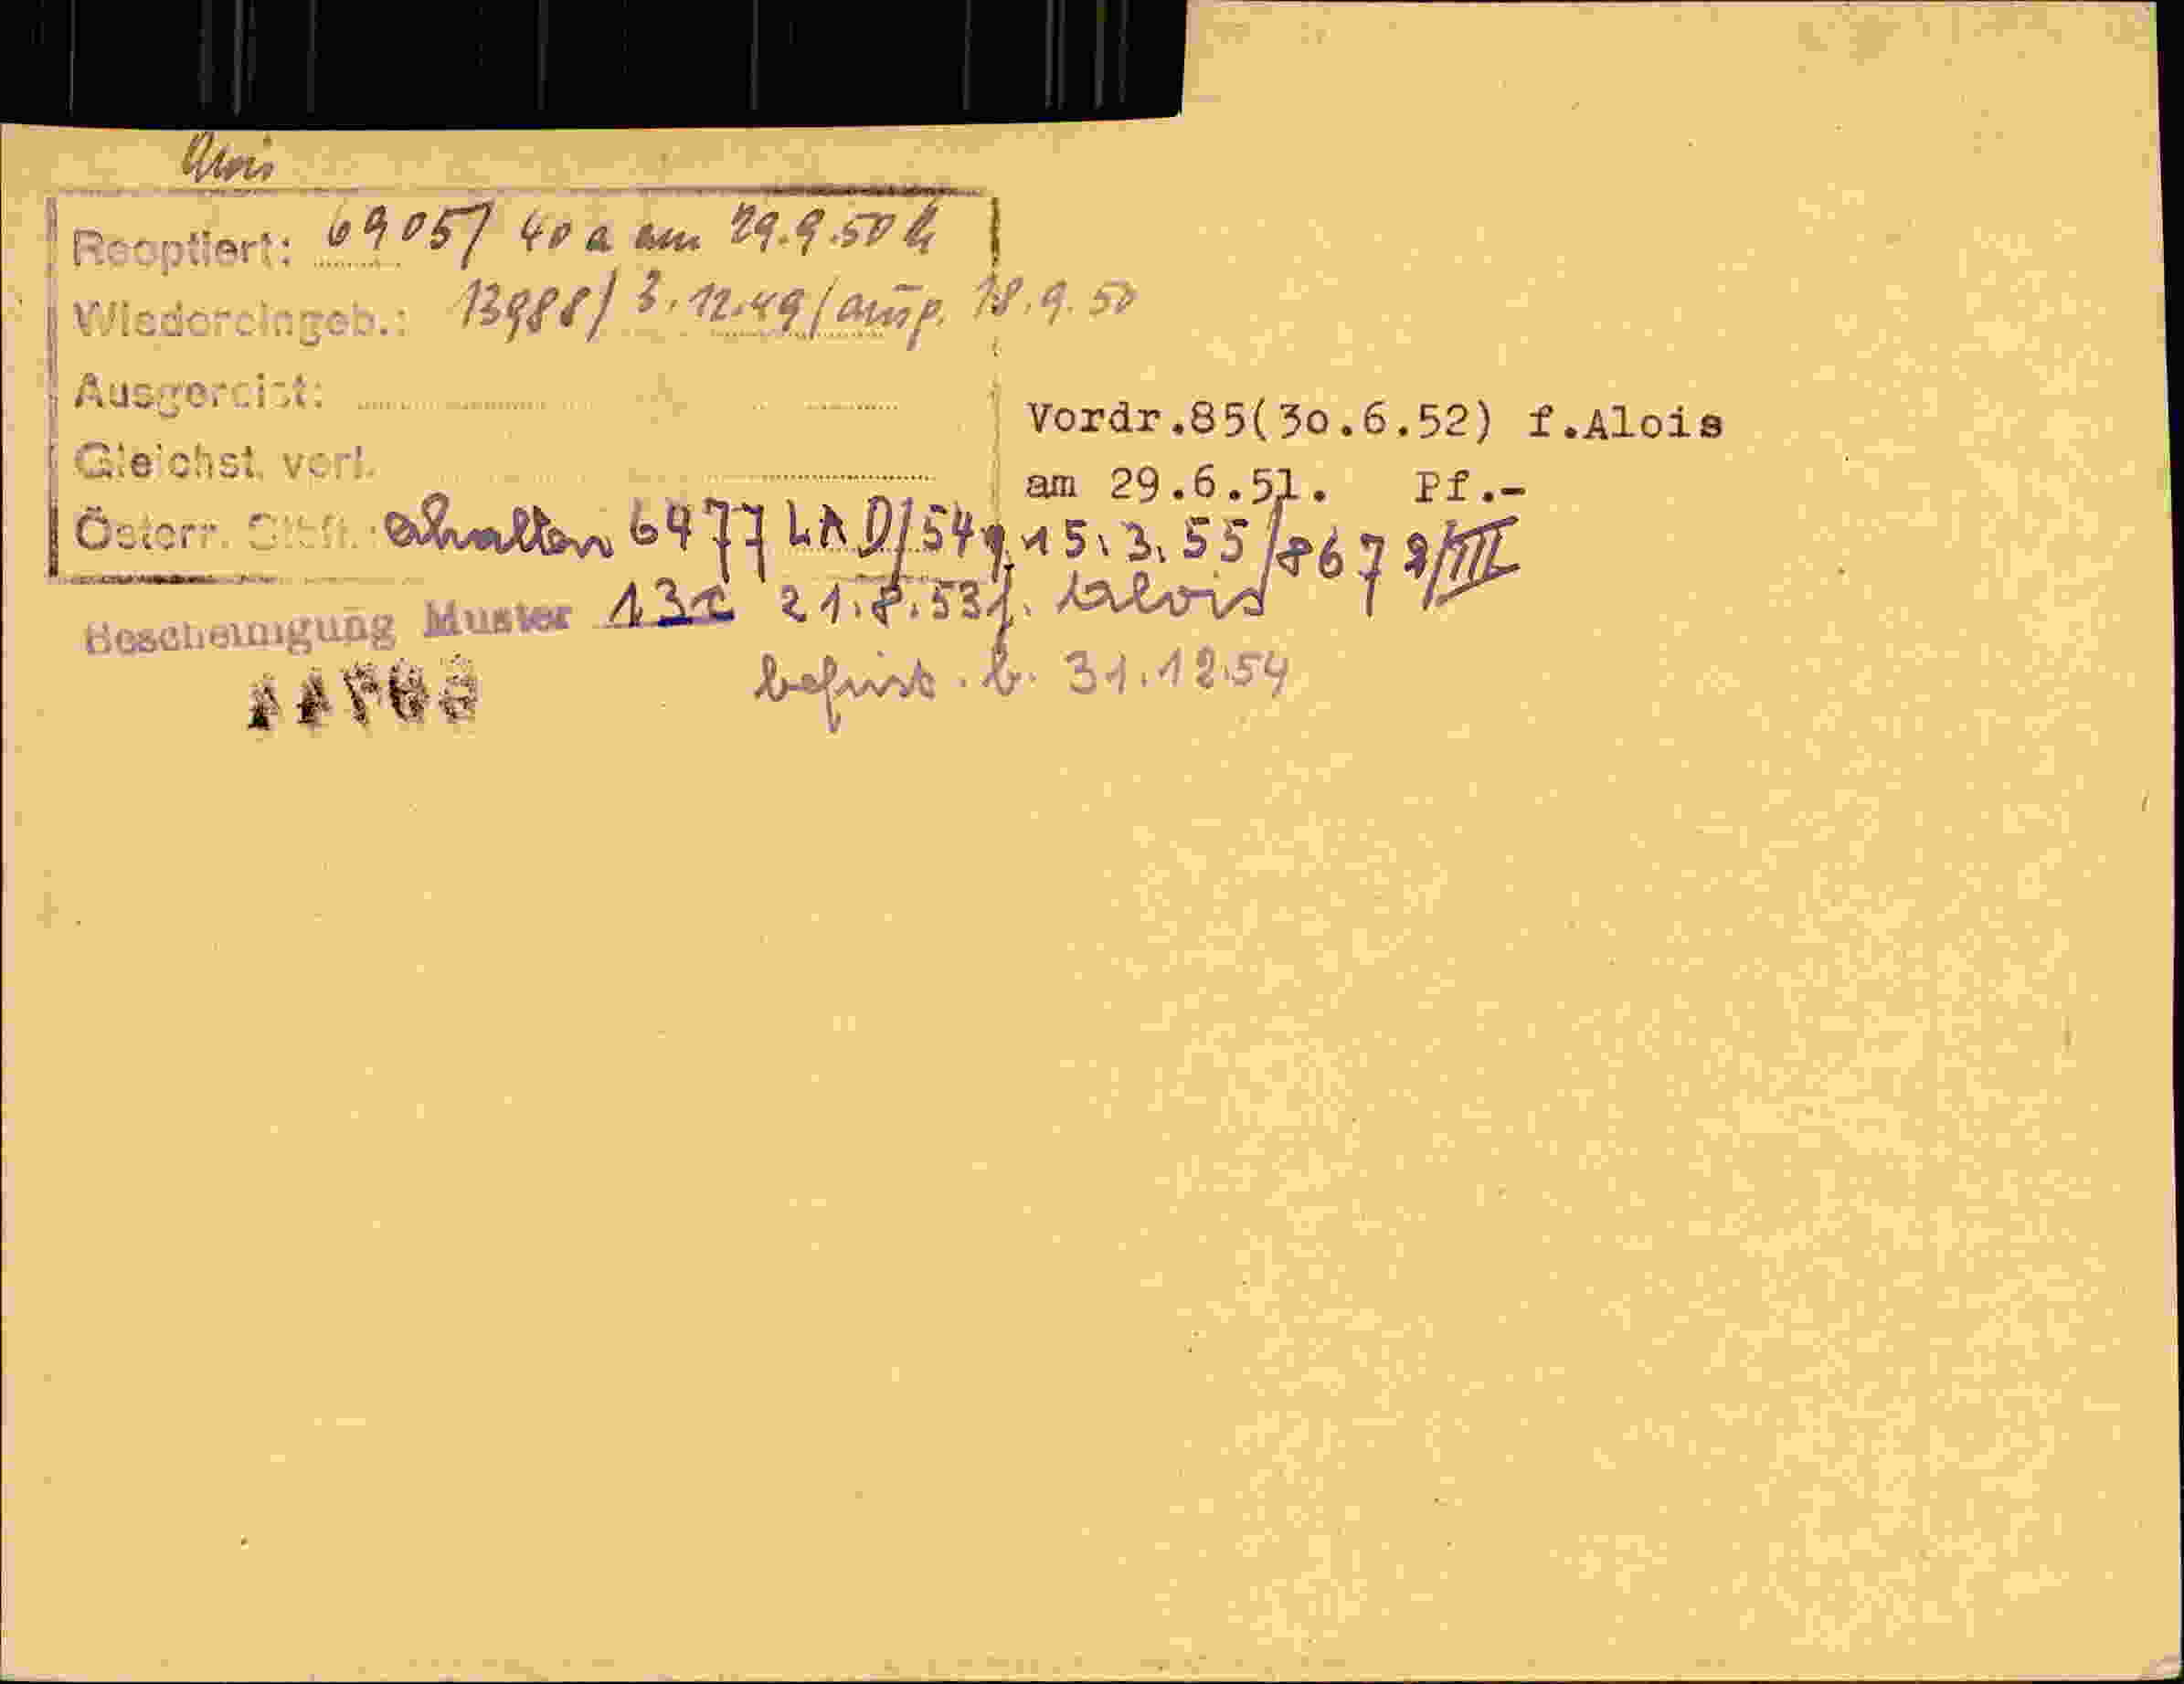 Alois
Reoptiert: 69057 40 a am 29.9.50
Wiedereingeb.: 13988/ 3.12.49/ausp. 18.9.50
Ausgereist:
Gleichst. verl.
Vordr.85(30.6.52) f.Alois
am 29.6.51. Pf.-
Österr. Stbft.: erhalten 6477 LAD/54 15.3.55/8678/III
Bescheinigung Muster 13c 21.8.53 f. Alois
befrist. b. 31.12.54